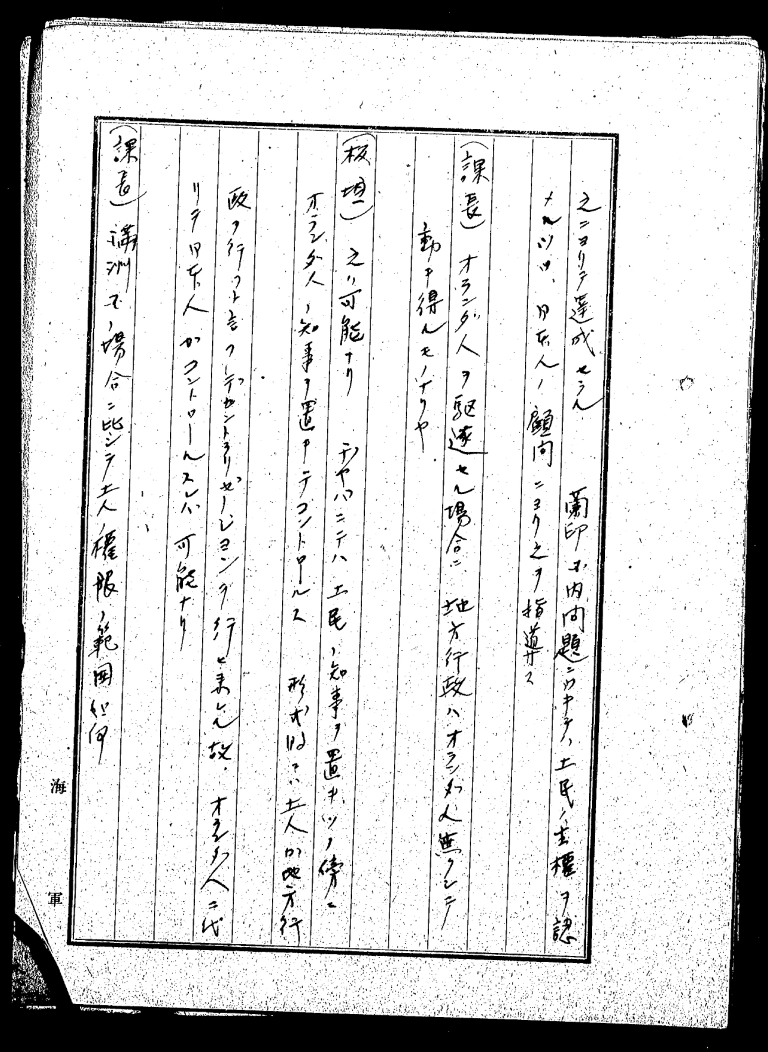 之ニヨリテ達成セラル　蘭印ノ内問題ニツキテハ土民ノ主權ヲ認
メルツツ、日本人ノ顧問ニヨリ之ヲ指導ス
(課長) オランダ人ヲ駆逐セル場合ニ 地方行政ハオランダ人無クシテ
動キ得ルモノナリヤ
(板垣) 之ハ可能ナリ　ヂヤバニテハ土民ノ知事ヲ置キツツ傍ニ
オランダ人ノ知事ヲ置キテコントロールス 形式的ニハ土人が地方行
政ヲ行フト言フデセントラリゼーシヨンヲ行ヒ来レル故、オランダ人ニ代
リテ日本人がコントロールスレバ可能ナリ
(課長) 満洲デノ場合ニ比シテ土人ノ權限ノ範囲如何
海軍